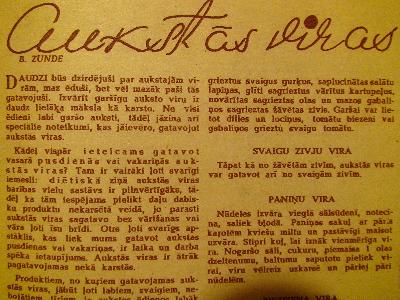 Aukstās viras
B. ZUNDE
DAUDZI būs dzirdējuši par aukstajām vi-
rām, maz ēduši, bet vēl mazāk paši tās
gatavojuši. Izvārīt garšīgu auksto viru ir
daudz lielāka māksla kā karsto. Ne visi
ēdieni labi garšo auksti, tādēļ jāzina arī
speciālie noteikumi, kas jāievēro, gatavojot
aukstās viras.
Kādēļ vispār ieteicams gatavot
vasarā pusdienās vai vakariņās auk-
stās viras? Tam ir vairāki ļoti svarīgi
iemesli: diētiskā ziņā aukstās viras
barības vielu sastāvs ir pilnvērtīgāks, tā-
dēļ ka tam iespējams pielikt daļu dabis-
ku produktu nekarsētā veidā, jo parasti
aukstās viras sagatavo bez vārīšanas vai
vāra ļoti īsu brīdi. Otrs ļoti svarīgs ap-
stāklis, kas liek mums gatavot aukstās
pusdienas vai vakariņas, ir laika un darba
spēka ietaupījums. Aukstās viras ir ātrāk
pagatavojamas nekā karstās.
Produktiem, no kuriem gatavojamas auk-
stās viras, jābūt ļoti labiem, svaigiem, ne-
grieztus svaigus gurķos, saplucinātas salātu
lapiņas, glīti sagrieztus vārītus kartupeļus,
novārītas sagrieztas olas un mazos gabali-
ņos sagrieztas žāvētas zivis. Garšai var lie-
tot dilles un lociņus, tomātu biezeni vai
gabaliņos grieztu svaigu tomātu.
SVAIGU ZIVJU VIRA
Tāpat kā no žāvētām zivīm, aukstās viras
var gatavot arī no svaigām zivīm.
PANIŅU VIRA
Nūdeles izvāra vieglā sālsūdenī, noteci-
na, saliek bļodā. Paniņas sakuļ ar pāra
karotēm kviešu miltu un pastāvīgi maisot
uzvāra. Stipri kuļ, lai iznāk vienmērīga vi-
ra. Nogaršo sāli, cukuru, piemaisa 1 olas
dzeltenumu, baltumu saputotu pieliek vi-
rai, viru vēlreiz uzkarsē un pārlej pāri
nūdelēm.